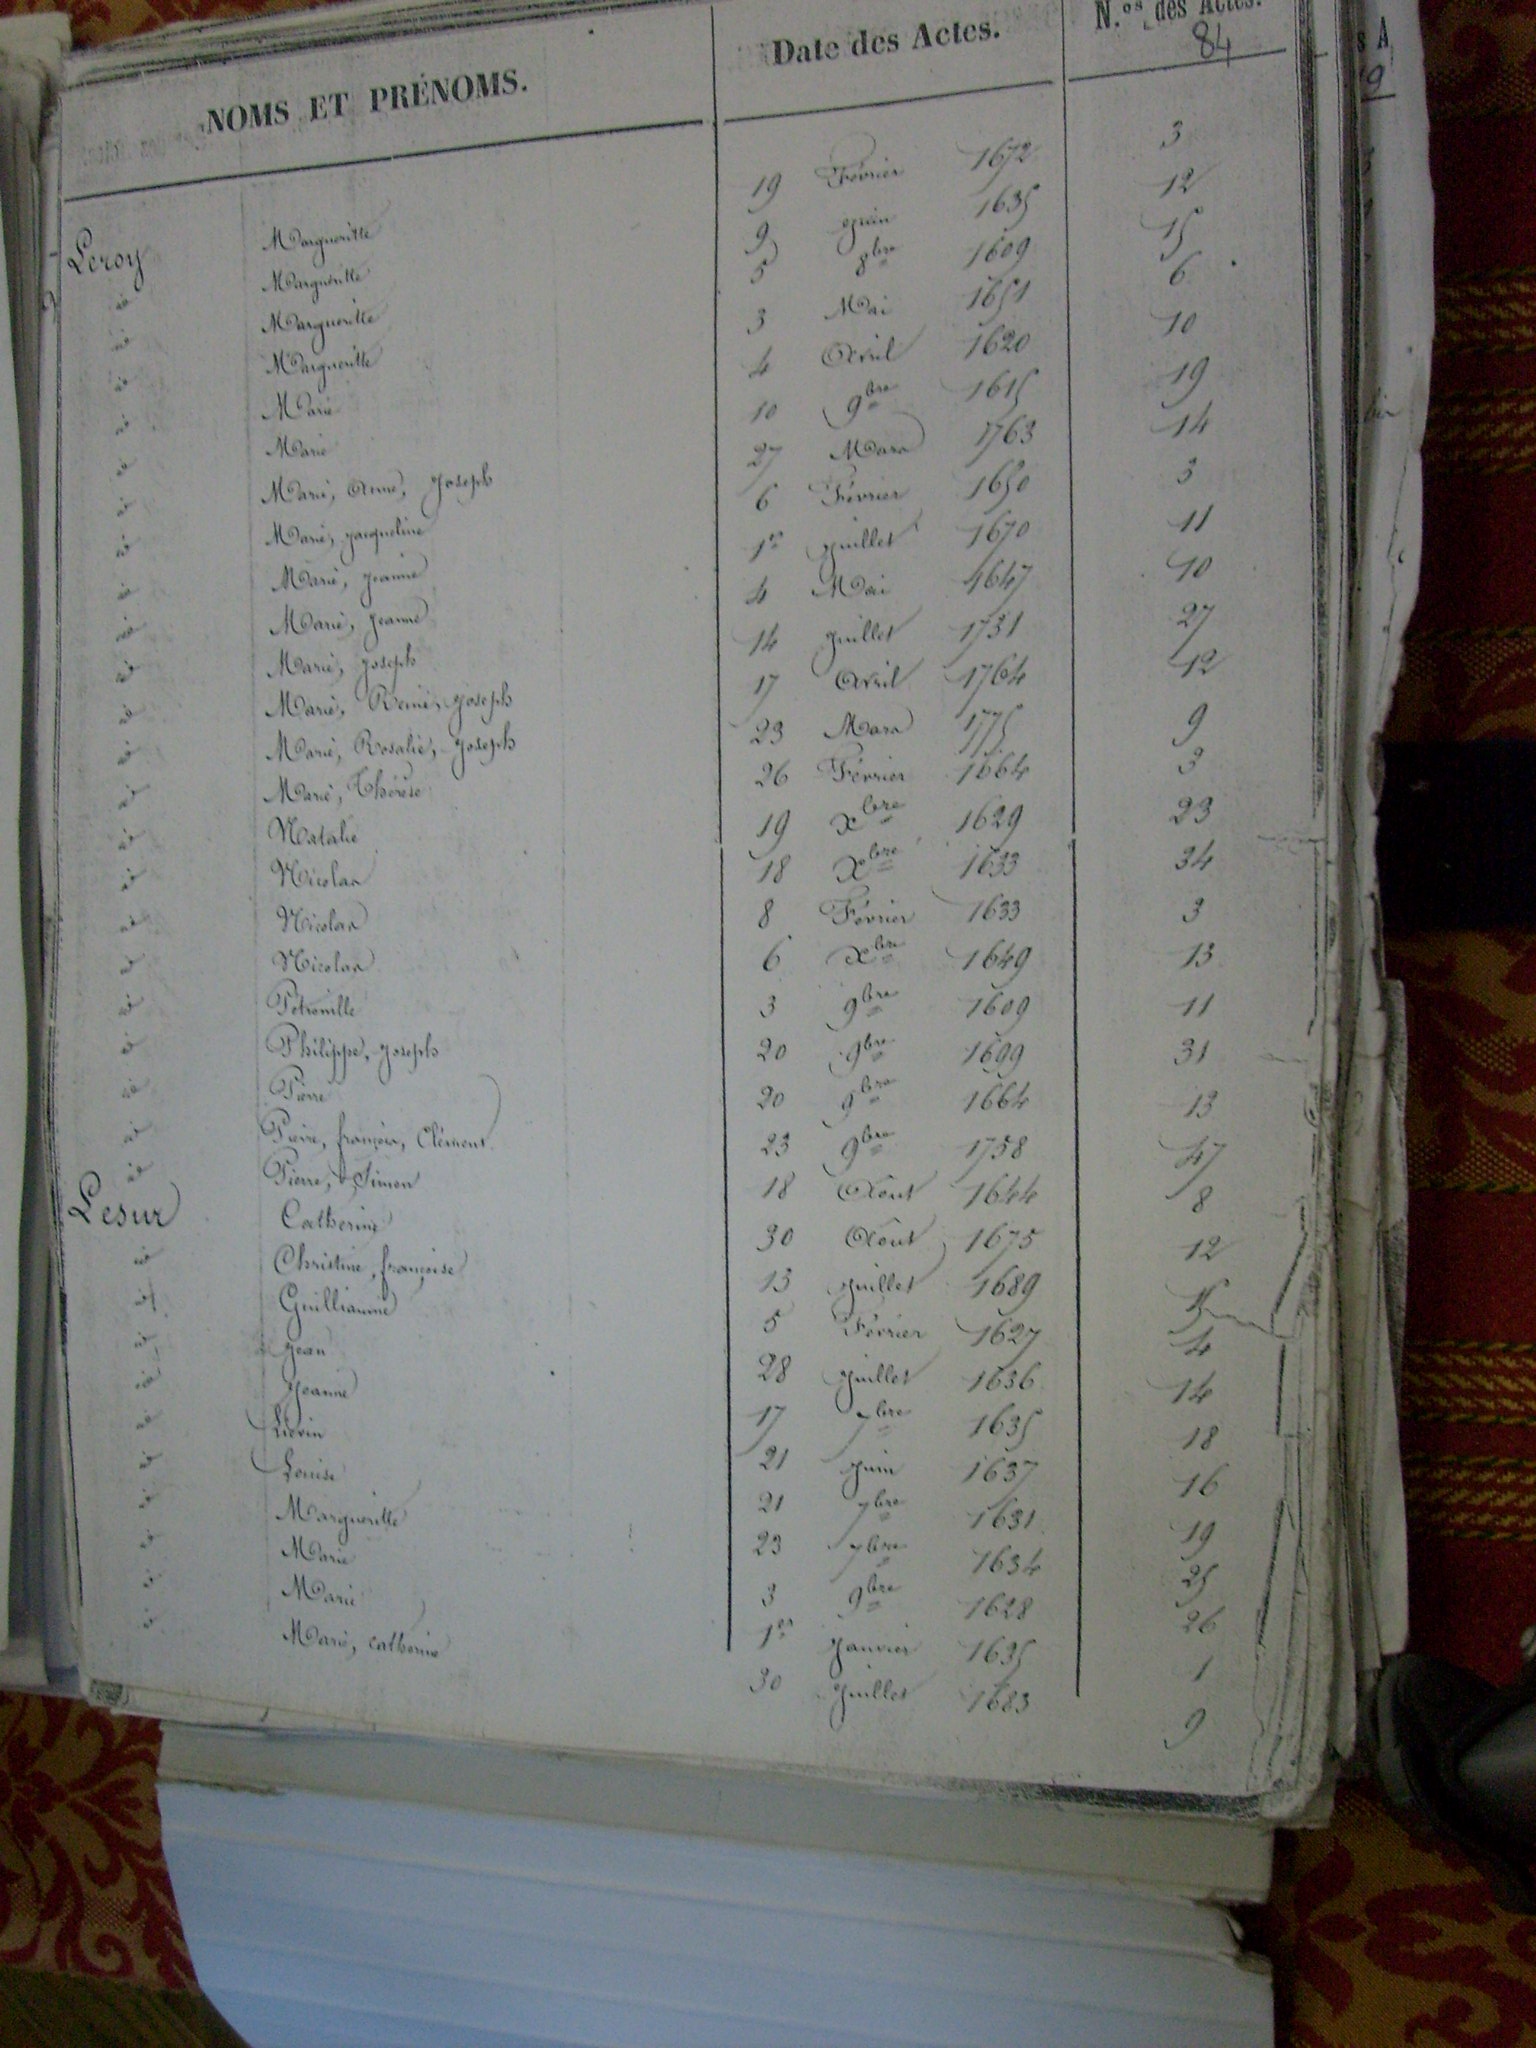 NOMS ET PRÉNOMS. Date des Actes. N.os des Actes.
84
Leroy Margueritte 19 Février 1672 3
id Margueritte 9 juin 1635 12
id Margueritte 5 8bre 1609 15
id Margueritte 3 Mai 1651 6
id Marie 4 Avril 1620 10
id Marie 10 9bre 1615 19
id Marie, Anne, Joseph 27 Mars 1763 14
id Marie, Jacqueline 6 Février 1650 3
id Marie, Jeanne 1er juillet 1670 11
id Marie, Jeanne 4 Mai 1647 10
id Marie, Joseph 14 juillet 1731 27
id Marie, Reine, Joseph 17 Avril 1764 12
id Marie, Rosalie, Joseph 23 Mars 1775 9
id Marie, Thérèse 26 Février 1664 3
id Natalie 19 Xbre 1629 23
id Nicolas 18 Xbre 1633 34
id Nicolas 8 Février 1633 3
id Nicolas 6 Xbre 1649 13
id Pétronille 3 9bre 1609 11
id Philippe, Joseph 20 9bre 1699 31
id Pierre 20 9bre 1664 13
id Pierre, françois, Clément 23 9bre 1758 47
id Pierre, Simon 18 Aout 1644 8
Lesur Catherine 30 Aout 1675 12
id Christine, françoise 13 juillet 1689 15
id Guilliaume 5 Février 1627 4
id Jean 28 juillet 1636 14
id Jeanne 17 7bre 1635 18
id Liévin 21 juin 1637 16
id Louise 21 7bre 1631 19
id Margueritte 23 7bre 1634 25
id Marie 3 9bre 1628 26
id Marie 1er janvier 1635 1
id Marie, catherine 30 juillet 1683 9